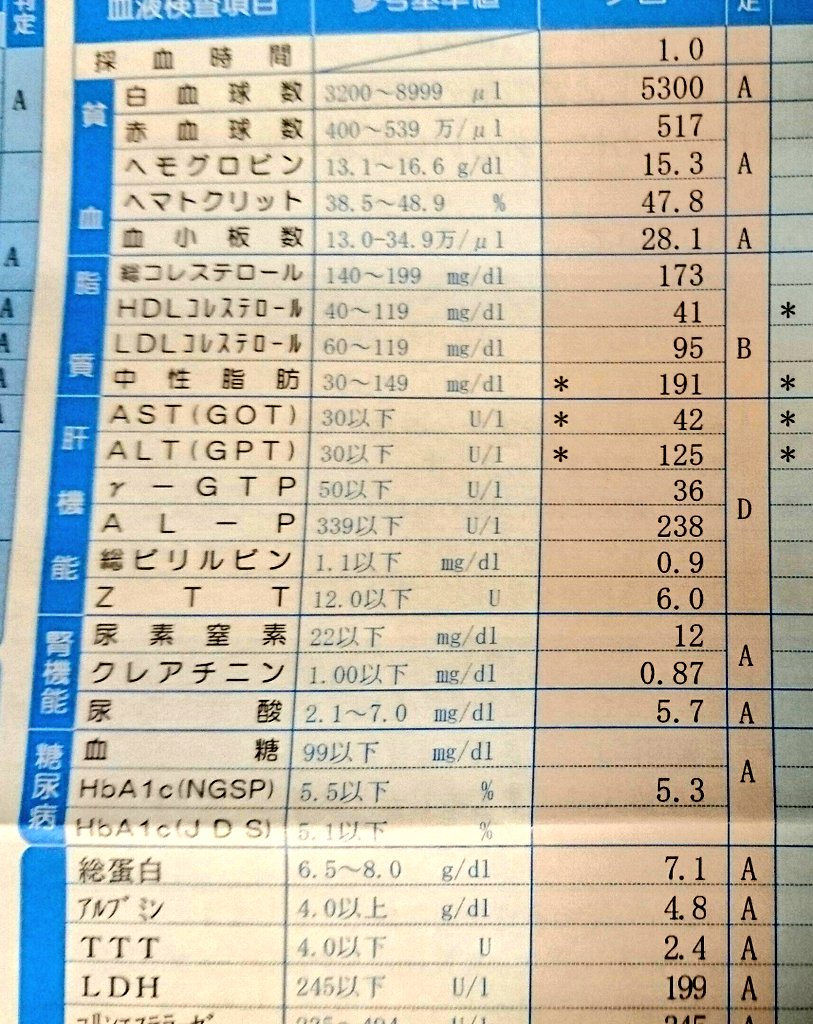 判定
血液検査項目 参考基準値 定
採血時間 1.0
A 貧血 白血球数 3200～8999 μl 5300 A
赤血球数 400～539 万/μl 517
ヘモグロビン 13.1～16.6 g/dl 15.3 A
ヘマトクリット 38.5～48.9 % 47.8
A 血小板数 13.0-34.9万/μl 28.1 A
脂質 総コレステロール 140～199 mg/dl 173
A HDLコレステロール 40～119 mg/dl 41 *
A LDLコレステロール 60～119 mg/dl 95 B
A 中性脂肪 30～149 mg/dl * 191 *
A 肝機能 AST(GOT) 30以下 U/l * 42 *
ALT(GPT) 30以下 U/l * 125 *
γ－GTP 50以下 U/l 36
AL－P 339以下 U/l 238 D
総ビリルビン 1.1以下 mg/dl 0.9
ZTT 12.0以下 U 6.0
腎機能 尿素窒素 22以下 mg/dl 12 A
クレアチニン 1.00以下 mg/dl 0.87
尿酸 2.1～7.0 mg/dl 5.7 A
糖尿病 血糖 99以下 mg/dl A
HbA1c(NGSP) 5.5以下 % 5.3
HbA1c(JDS) 5.1以下 %
総蛋白 6.5～8.0 g/dl 7.1 A
アルブミン 4.0以上 g/dl 4.8 A
TTT 4.0以下 U 2.4 A
LDH 245以下 U/l 199 A
コリンエステラーゼ 245